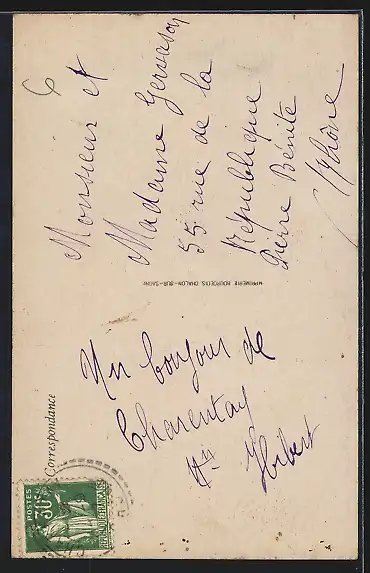 Correspondance
Un bonjour de
Charentay
Hibert
Monsieur et
Madame Gervason
55 rue de la
République
Pierre Bénite
Rhône
IMPRIMERIE BOURGEOIS, CHALON-SUR-SAONE
POSTES
30c
REPUBLIQUE FRANÇAISE